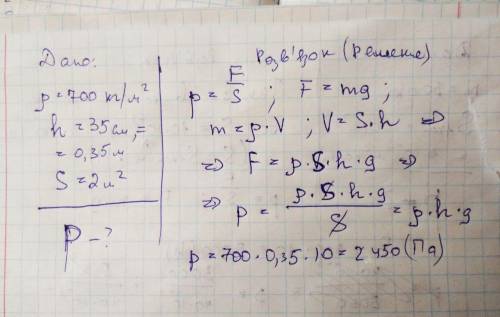 Дано:
ρ = 700 кг/м²
h = 35 см, =
= 0,35 м
S = 2 м²
P - ?
Розв'язок (Решение)
p = F/S ; F = mg ;
m = ρ · V ; V = S · h ⇒
⇒ F = ρ · S · h · g ⇒
⇒ p = ρ · S · h · g / S = ρ · h · g
p = 700 · 0,35 · 10 = 2450 (Па)